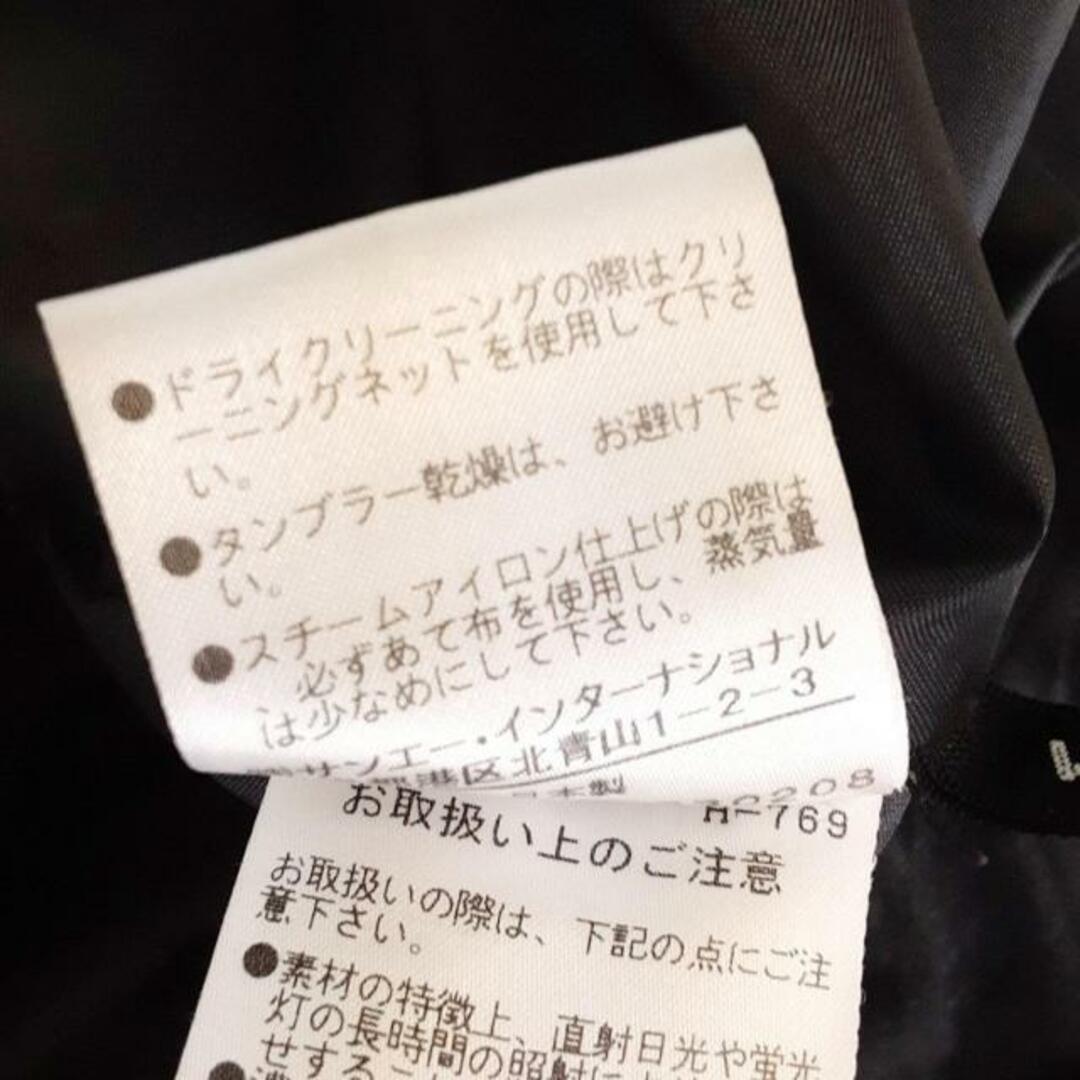 ●ドライクリーニングの際はクリ
ーニングネットを使用して下さ
い。
●タンブラー乾燥は、お避け下さ
い。
●スチームアイロン仕上げの際は
必ずあて布を使用し、蒸気量
は少なめにして下さい。
サンエー・インターナショナル
港区北青山1-2-3
日本製
2208
H-769
お取扱い上のご注意
お取扱いの際は、下記の点にご注
意下さい。
●素材の特徴上、直射日光や蛍光
灯の長時間の照射に
せするこ